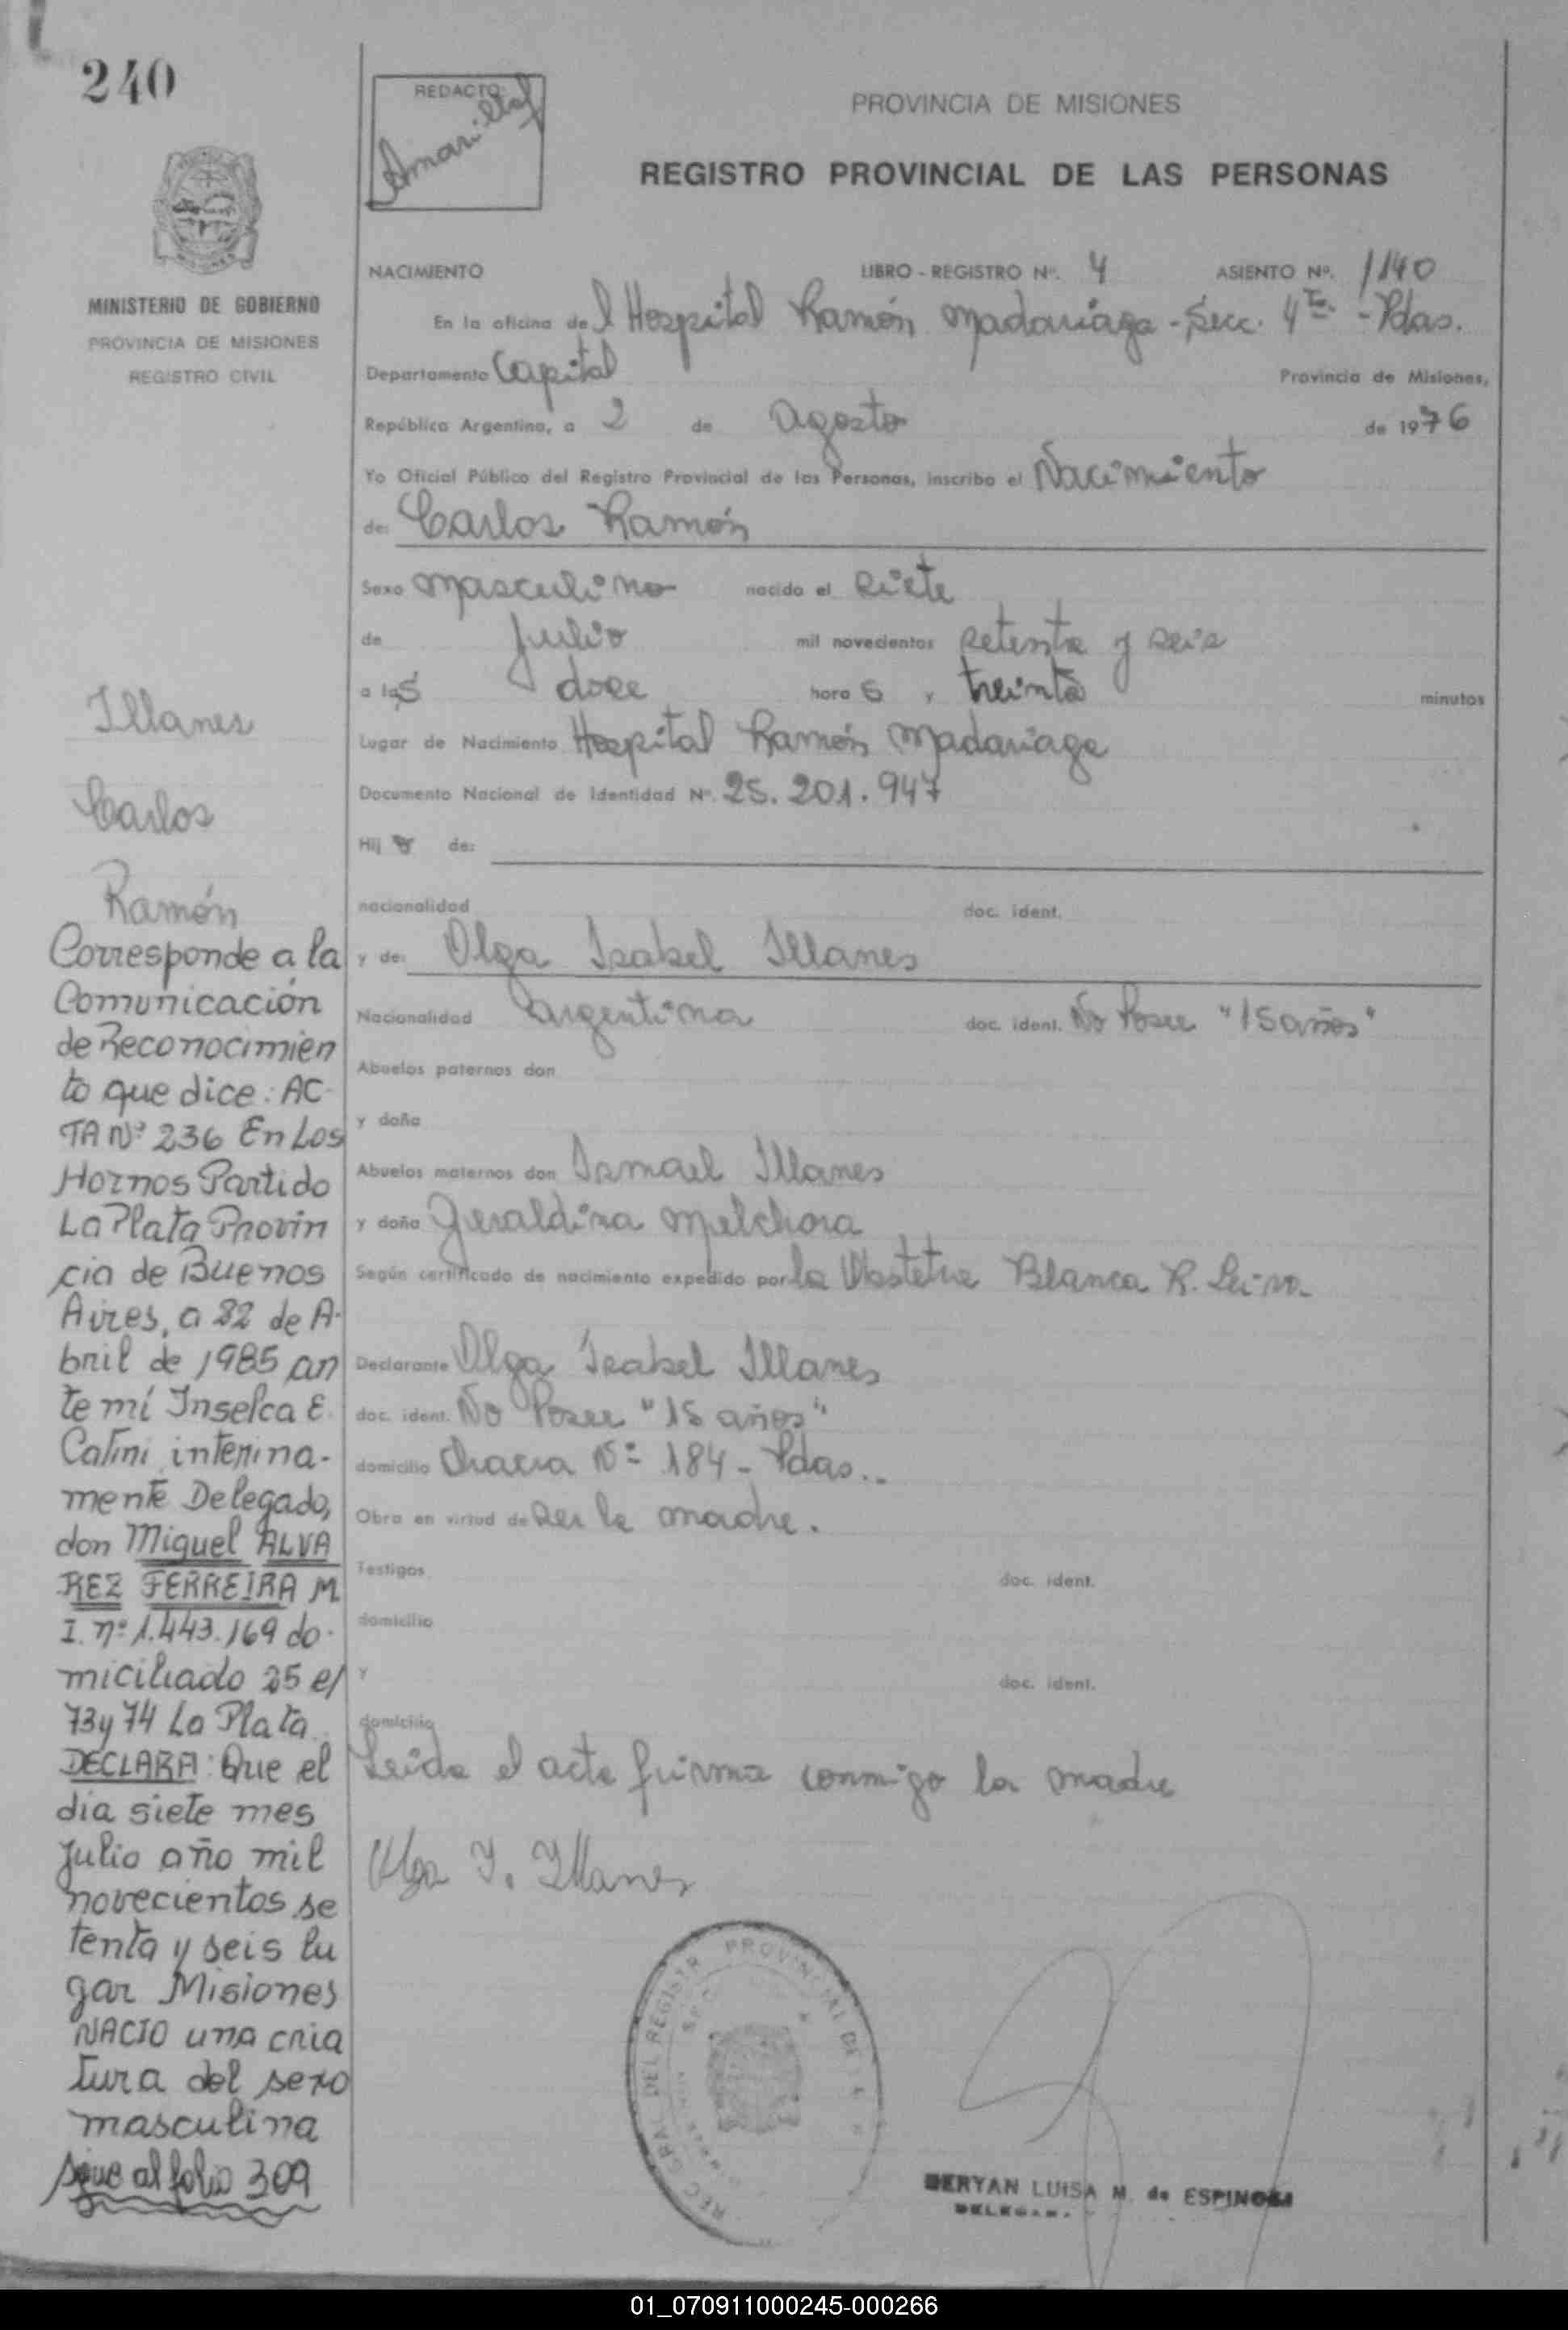 240
REDACTO:
PROVINCIA DE MISIONES
REGISTRO PROVINCIAL DE LAS PERSONAS
MINISTERIO DE GOBIERNO
PROVINCIA DE MISIONES
REGISTRO CIVIL
NACIMIENTO LIBRO - REGISTRO Nº. 4 ASIENTO Nº. 1140
En la oficina del Hospital Ramón Madariaga - Secc. 4ta - Pdas.
Departamento Capital Provincia de Misiones,
República Argentina, a 2 de Agosto de 1976
Yo Oficial Público del Registro Provincial de las Personas, inscribo el Nacimiento
de: Carlos Ramón
Sexo masculino nacido el siete
de julio mil novecientos setenta y seis
a las doce hora s y treinta minutos
Lugar de Nacimiento Hospital Ramón Madariaga
Documento Nacional de Identidad Nº. 25.201.947
Hij o de:
nacionalidad doc. ident.
y de: Olga Isabel Illanes
Nacionalidad argentina doc. ident. No Posee "15 años"
Abuelos paternos don
y doña
Abuelos maternos don Ismael Illanes
y doña Geraldina Melchora
Según certificado de nacimiento expedido por la Obstetra Blanca R.
Declarante Olga Isabel Illanes
doc. ident. No Posee "15 años"
domicilio Chacra Nº 184 - Pdas..
Obra en virtud de ser la madre.
Testigos doc. ident.
domicilio
Y doc. ident.
domicilio
Leida el acta firma conmigo la madre
Olga I. Illanes
REG GRAL DEL REGISTR PROVINCIAL DE LA
SEC 4
DERYAN LUISA M. de ESPINOSA
Illanes
Carlos
Ramón
Corresponde a la
Comunicación
de Reconocimien
to que dice: AC-
TA Nº 236 En Los
Hornos Partido
La Plata Provin
cia de Buenos
Aires, a 22 de A-
bril de 1985 an
te mí Inselca E.
Catini interina-
mente Delegado,
don Miguel ALVA
REZ FERREIRA M
I. nº 1.443.169 do-
miciliado 25 e/
73 y 74 La Plata
DECLARA: Que el
dia siete mes
Julio año mil
novecientos se
tenta y seis lu
gar Misiones
NACIO una cria
tura del sexo
masculina
sigue al folio 309
01_070911000245-000266